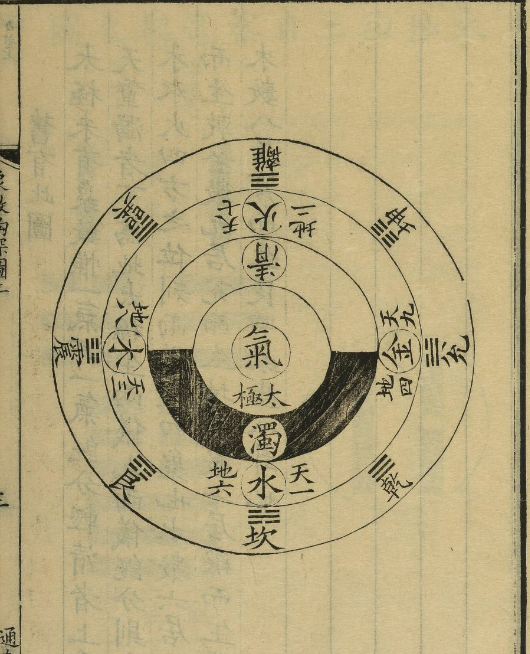 離
火
地二
天七
坤
巽
清
氣
太極
濁
兌
金
天九
地四
震
木
地八
天三
乾
艮
水
天一
地六
坎
三
通